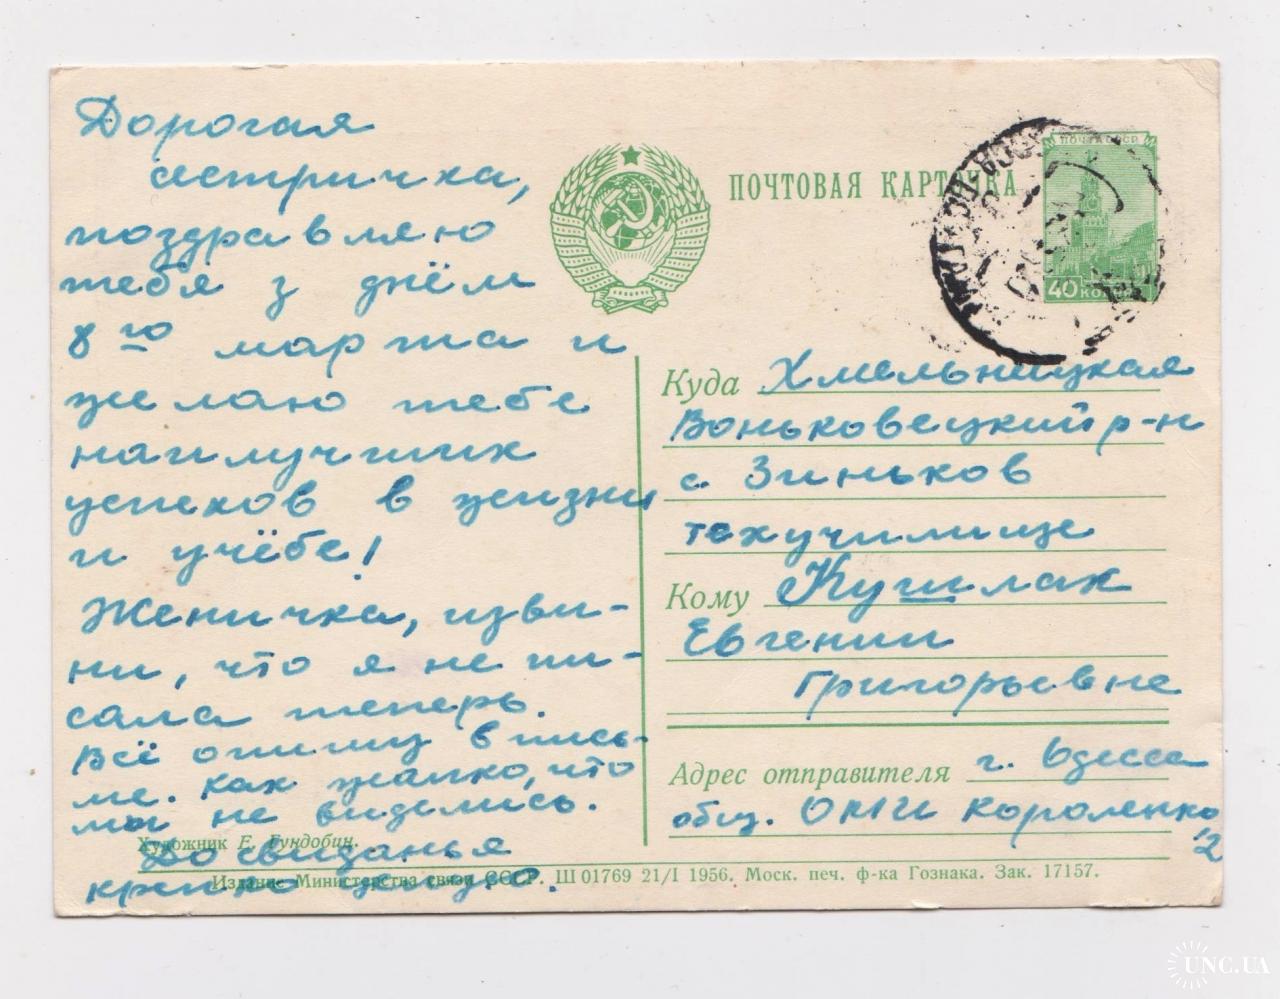 Дорогая
сестричка,
поздравляю
тебя з днём
8го марта и
желаю тебе
наилучших
успехов в жизни
и учёбе!
Женичка, изви-
ни, что я не пи-
сала теперь.
Всё опишу в пись-
ме. Как жалко, что
мы не виделись.
До свиданья
крепко целую.
Художник Е. Гундобин.
ПОЧТОВАЯ КАРТОЧКА
ПОЧТА СССР
40 КОП
Куда Хмельницкая
Воньковецкий р-н
с. Зиньков
техучилище
Кому Кушлак
Евгении
Григорьевне
Адрес отправителя г. Одесса
общ. ОМИ Короленко
12
Издание Министерства связи СССР. Ш 01769 21/I 1956. Моск. печ. ф-ка Гознака. Зак. 17157.
UNC.UA